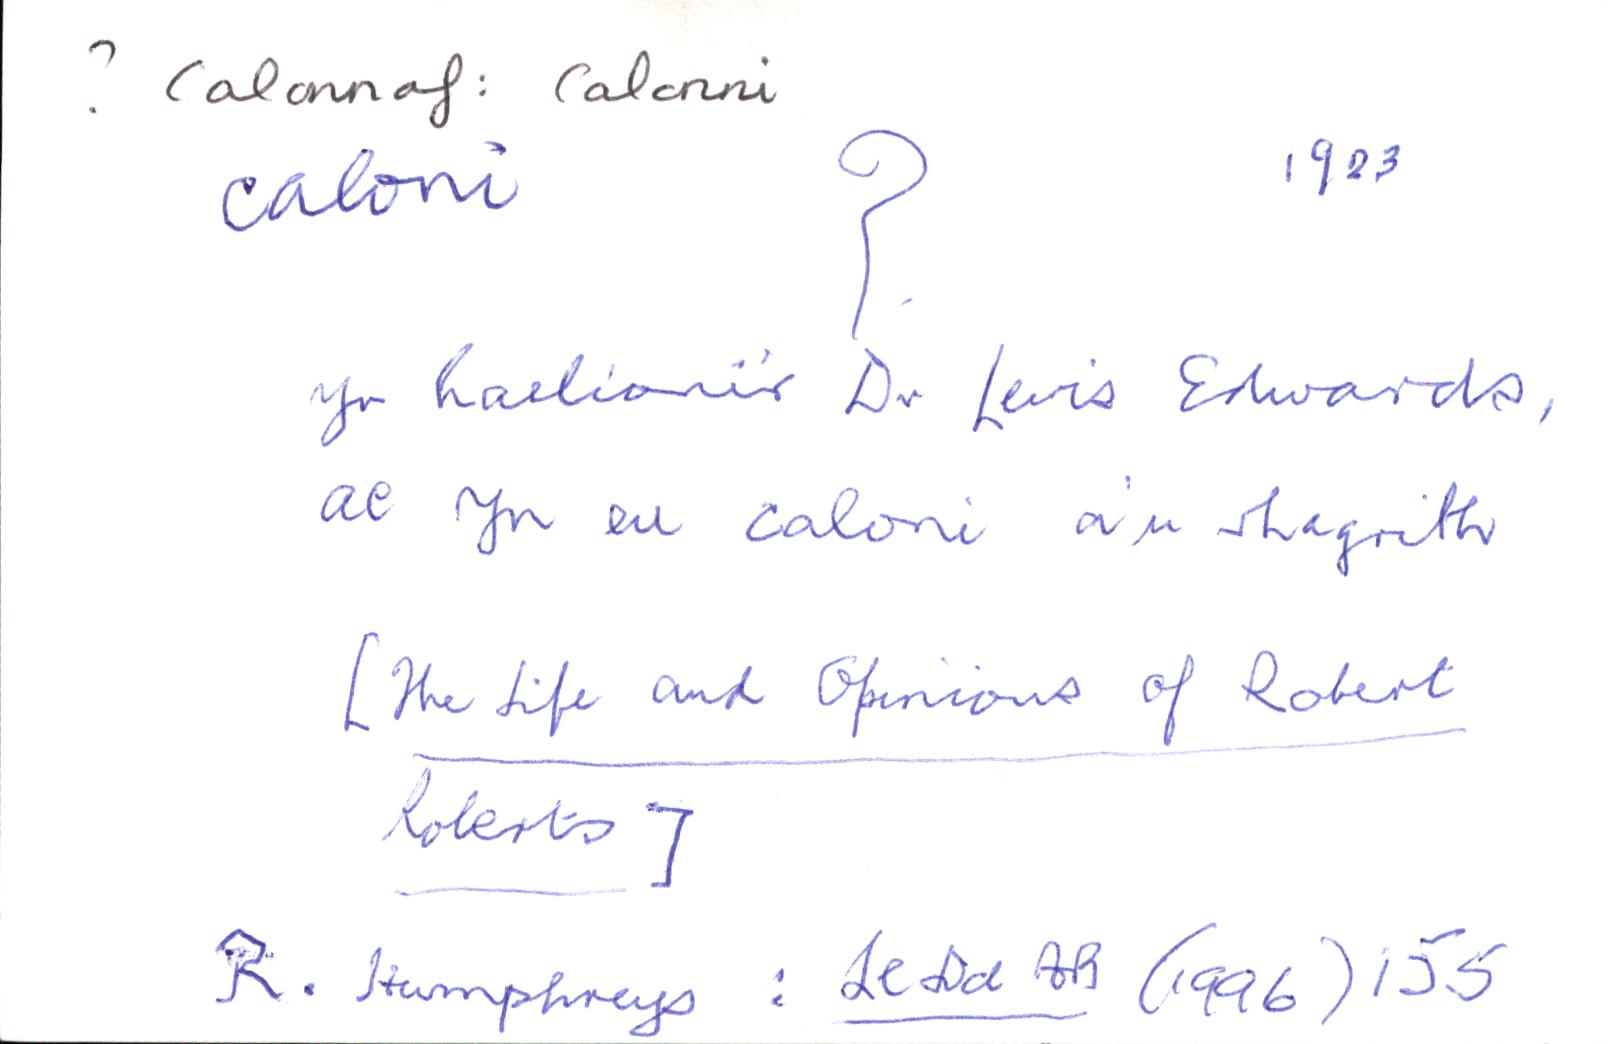 ? Calonnaf: Calonni
caloni ? 1923
yn haelionïs Dr Lewis Edwards,
ac yn eu caloni a'u
[The Life and Opinions of Robert
Roberts]
R. Humphreys : (1996) 155